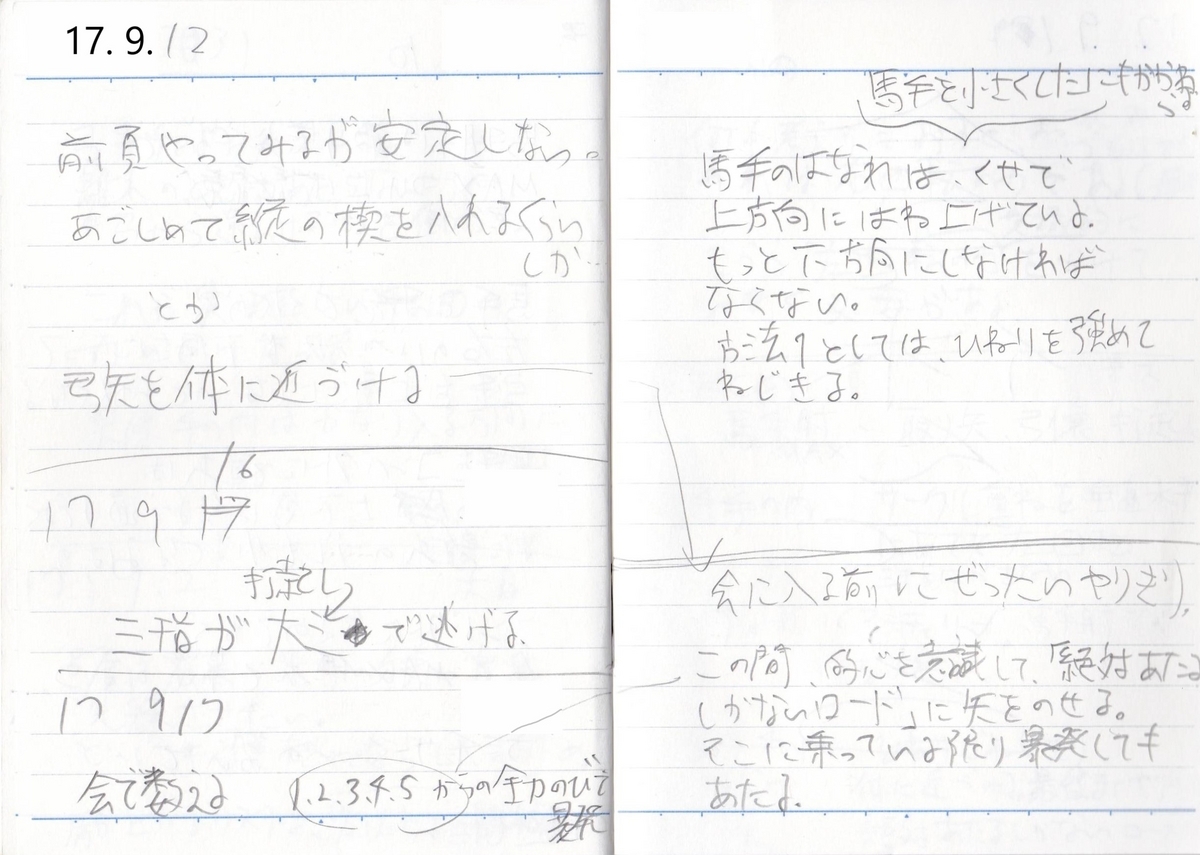 17. 9. 12
前頁やってみるが安定しない。
あごしめて縦の楔を入れるくらい
しか…
とか
弓矢を体に近づける
16
17 9 17
打起し
三指が大三で逃げる
17 9 17
会で数える 1.2.3.4.5 からの全力のびで
暴発
馬手を小さくした
馬手のはなれは、くせで
上方向にはね上げている。
もっと下方向にしなければ
なくない。
古法1としては、ひねりを強めて
ねじきる。
会に入る前にぜったいやりきり,
この間、的心を意識して、「絶対あたる
しかないロード」に矢をのせる。
そこに乗っている限り暴発しても
あたる。